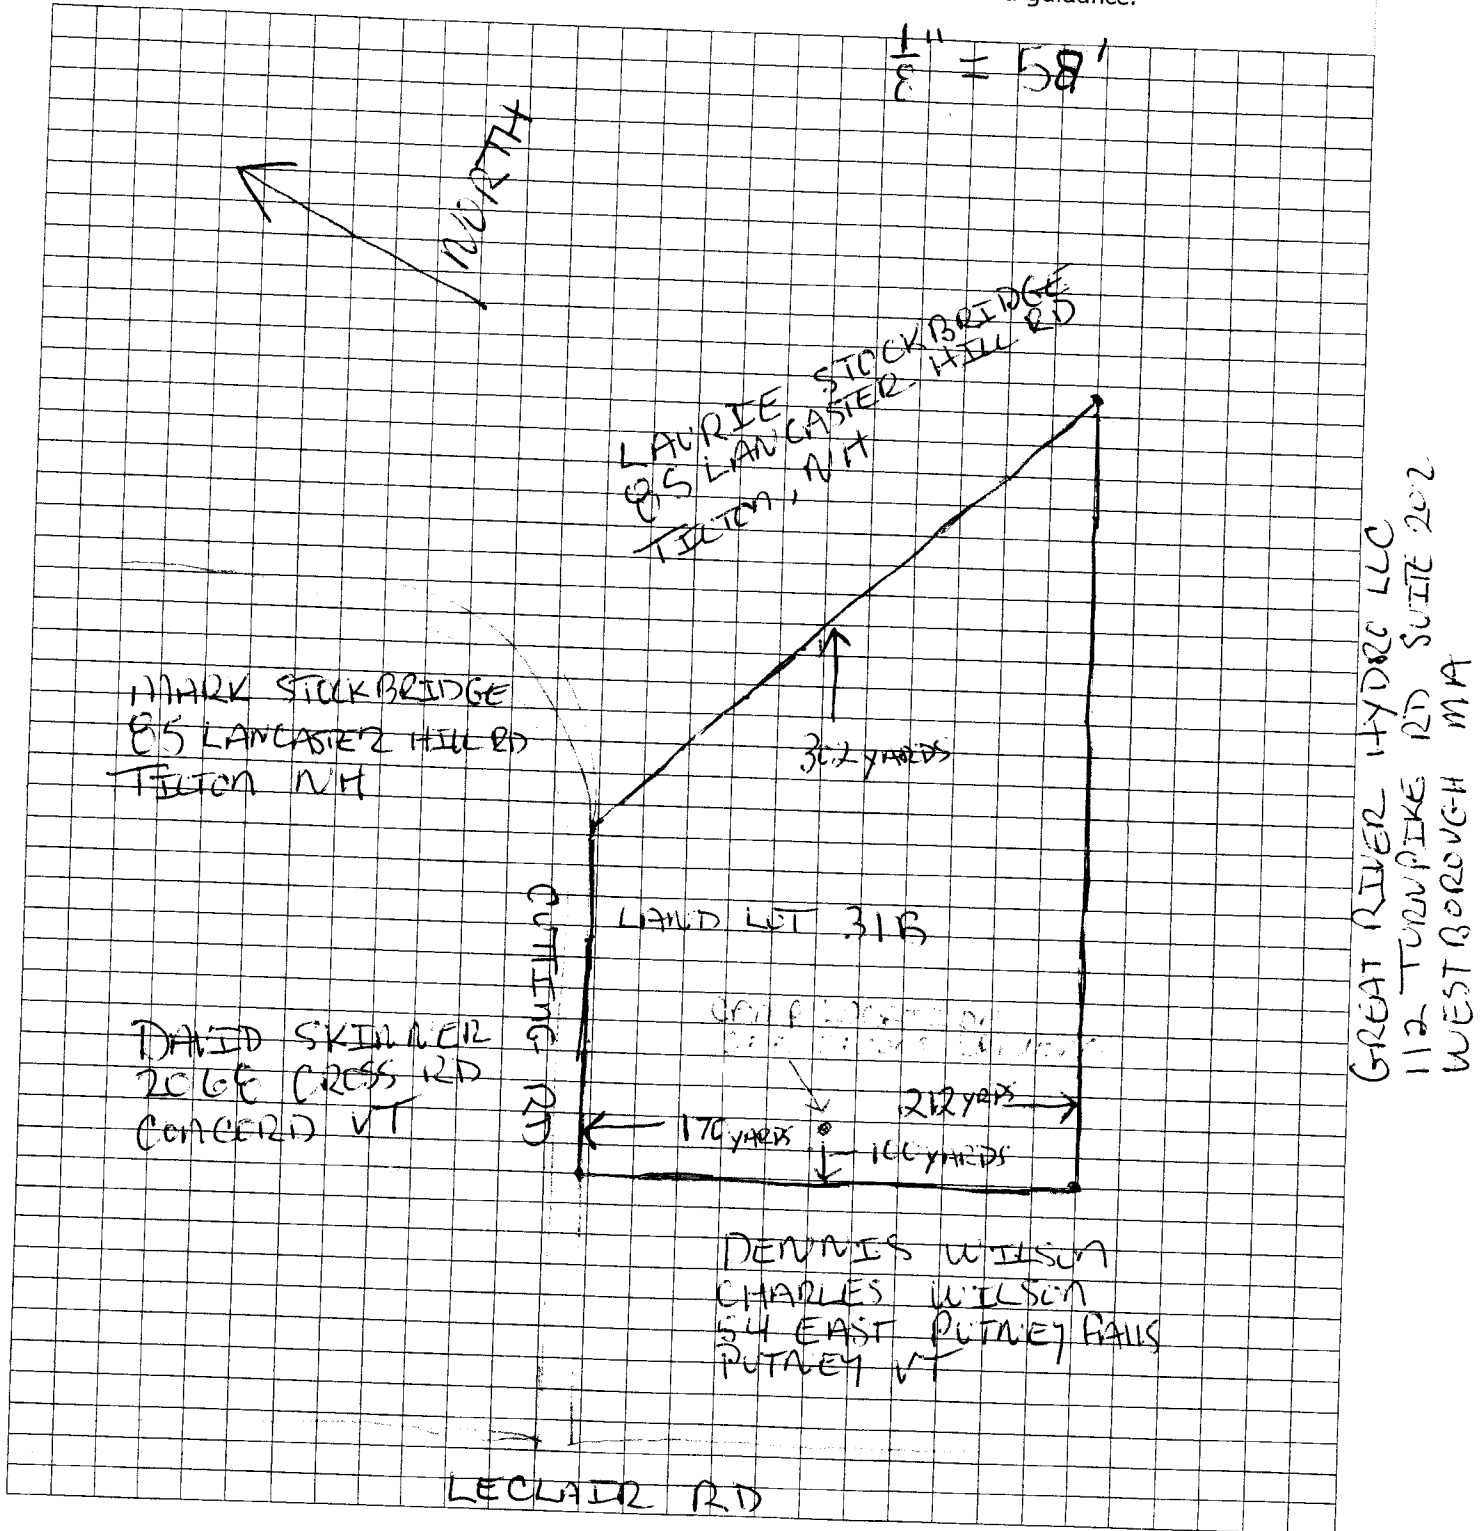 guidance.
1/8" = 58'
NORTH
LAURIE STOCKBRIDGE
85 LANCASTER HILL RD
TILTON, NH
MARK STOCKBRIDGE
85 LANCASTER HILL RD
TILTON NH
302 YARDS
GREAT RIVER HYDRO LLC
112 TURNPIKE RD SUITE 202
WEST BOROUGH MA
CUTTING RD
LAND LOT 31B
DAVID SKINNER
CROSS RD
CONCORD VT
212 YRDS
170 YARDS
100 YARDS
DENNIS WILSON
CHARLES WILSON
54 EAST PUTNEY FALLS
PUTNEY VT
LECLAIR RD